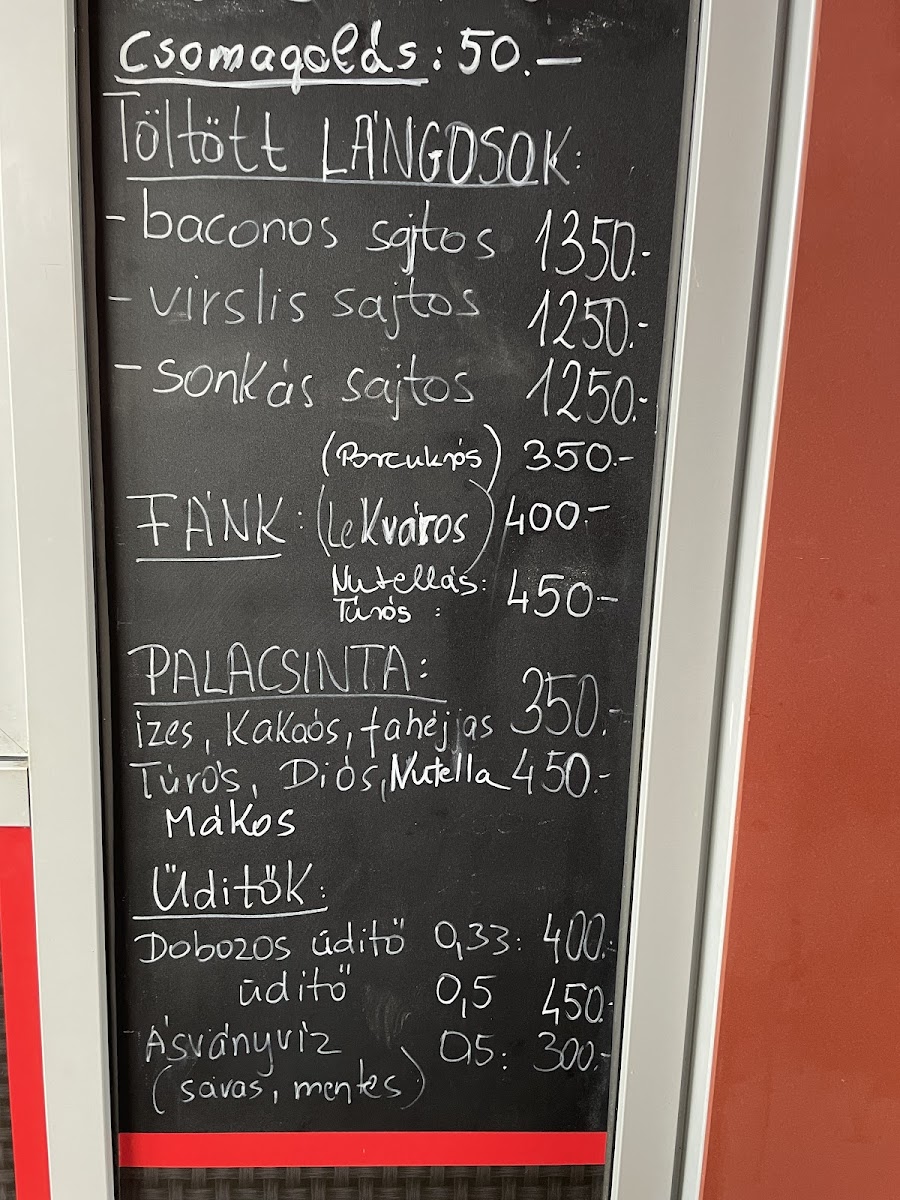 Csomagolás: 50.-
Töltött LÁNGOSOK:
- baconos sajtos 1350.-
- virslis sajtos 1250.-
- sonkás sajtos 1250.-
(Porcukros) 350.-
FÁNK: (Lekváros) 400.-
Nutellás: 450.-
Túrós :
PALACSINTA:
ízes, kakaós, fahéjjas 350.-
Túrós, Diós, Nutella 450.-
Mákos
Üditők:
Dobozos üditő 0,33: 400.-
üditő 0,5 450.-
- Ásványvíz 0,5: 300.-
(savas, mentes)